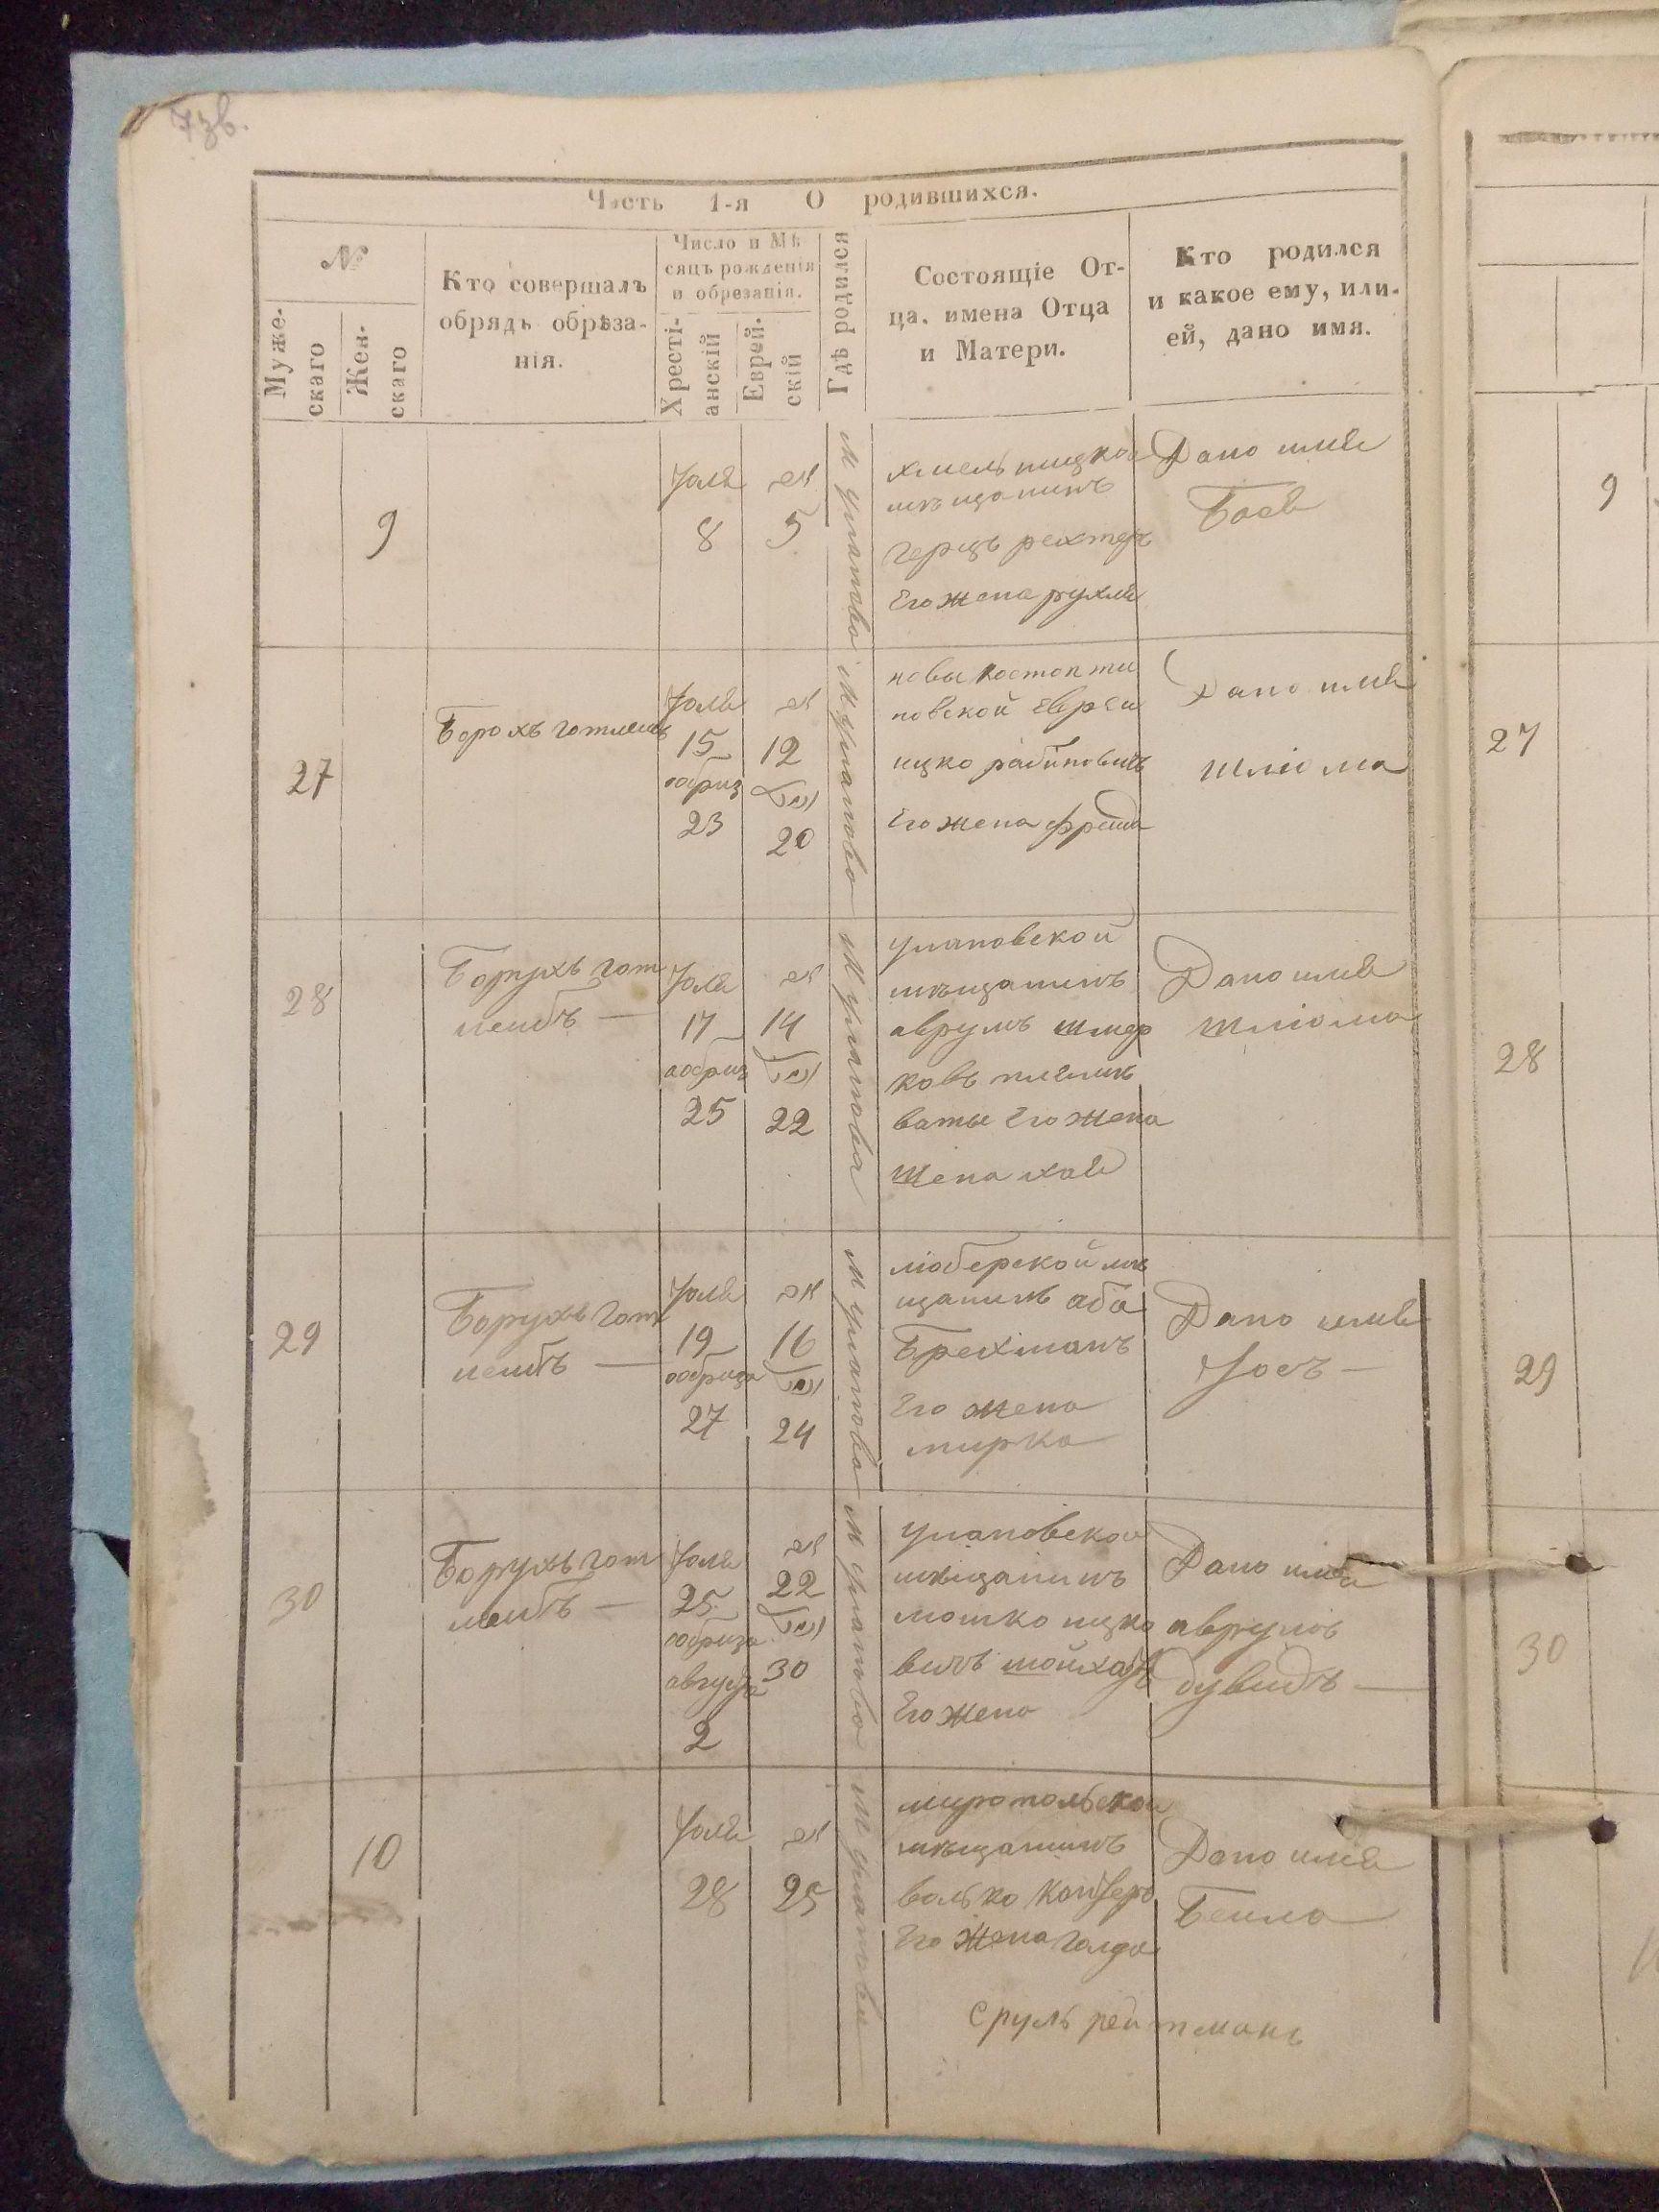 73в.
Часть 1-я О родившихся.
№
Муже-
скаго
Жен-
скаго
Кто совершалъ
обрядъ обрѣза-
нія.
Число и Мѣ
сяцъ рожденія
и обрезанія.
Хресті-
анскій
Еврей-
скій
Гдѣ родился
Состоящіе От-
ца, имена Отца
и Матери.
Кто родился
и какое ему, или-
ей, дано имя.
9
Юля
8
5
м уланово
хмельницкой
мѣщанинъ
герцъ рехтеръ
Его жена рухля
Дано имя
Бася
27
Борохъ готлеибъ
Юля
15
обриз
23
אב
12
20
м уланово
новы костонти
новской Евреи
ицко рабиновичъ
Его жена фреида
Дано имя
шлиома
28
Борухъ гот
леибъ —
Юля
17
25
14
22
м уланова
улановской
мѣщанинъ
аврумъ шмер
ковъ
Его жена
жена хая
Дано имя
шлиома
29
Борухъ гот
леибъ —
Юля
19
27
16
24
м уланова
люберской мѣ
щанинъ аба
Брехманъ
Его жена
мирка
Дано имя
Йосъ —
30
Борухъ гот
леибъ —
Юля
25
августа
2
22
30
м уланово
улановской
мѣщанинъ
мошко ицко
вичъ
Его жена
Дано имя
аврумъ
дувидъ —
10
Юля
28
25
м уланови
миропольской
мѣщанинъ
волько
Его жена голда
Дано имя
Беила
Сруль рейтманъ
9
27
28
29
30